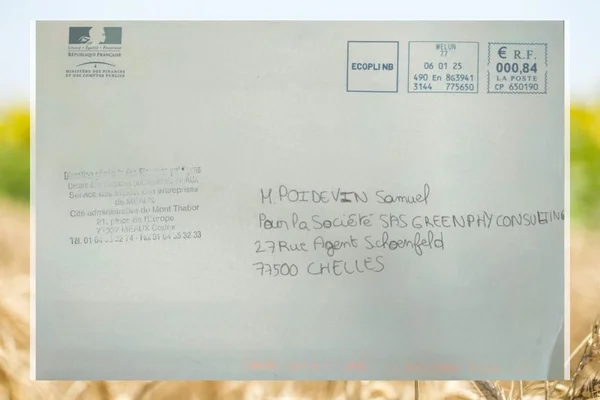 Liberté • Égalité • Fraternité
RÉPUBLIQUE FRANÇAISE
MINISTÈRE DES FINANCES
ET DES COMPTES PUBLICS
ECOPLI NB
MELUN
77
06 01 25
490 En 863941
3144 775650
€ R.F.
000,84
LA POSTE
CP 650190
Service des impôts des entreprises
de MEAUX
Cité administrative du Mont Thabor
21, place de l'Europe
77337 MEAUX Cedex
M. POIDEVIN Samuel
Pour la Société SAS GREENPHY CONSULTING
27 Rue Agent Schoenfeld
77500 CHELLES